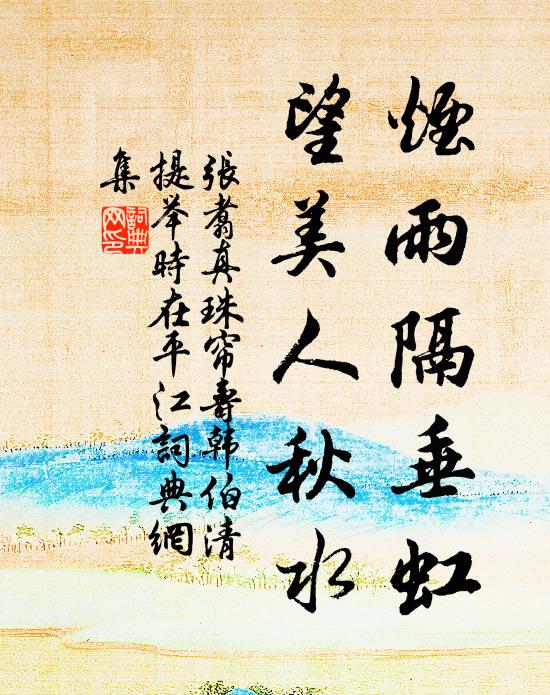 煙雨隔垂虹
望美人秋水
張翥真珠帘壽韓伯清
提举時在平江詞典網
集
詞典网印